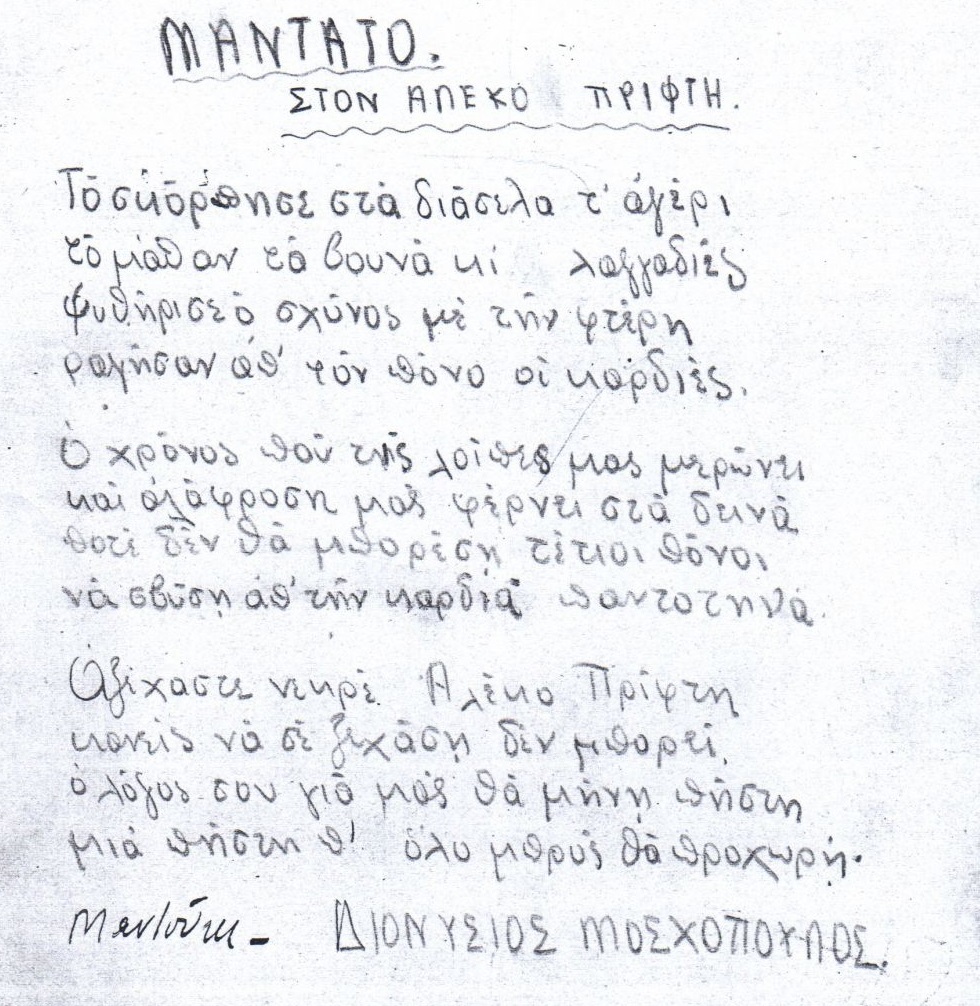 ΜΑΝΤΑΤΟ.
ΣΤΟΝ ΑΛΕΚΟ ΠΡΙΦΤΗ.
Τό σκόρπησε στά διάσελα τ' ἀγέρι
τό μάθαν τά βουνά κι λαγγαδιές
ψυθήρισε ὁ σχύνος μέ τήν φτέρη
ραγήσαν ἀπ' τόν πόνο οἱ καρδιές.
Ὁ χρόνος πού τής λοίπες μας μερώνει
καί ἀλάφροση μάς φέρνει στά δεινά
ποτέ δέν θά μπορέση τέτιοι πόνοι
νά σβύση ἀπ' τήν καρδιά παντοτηνά.
Ἀξέχαστε νεκρέ Ἀλέκο Πρίφτη
κανείς νά σέ ξεχάση δέν μπορεί,
ὁ λόγος σου γιά μάς θά μήνη πήστη
μιά πήστη π' ὅλο μπρός θά προχωρή.
Μαντούκι - ΔΙΟΝΥΣΙΟΣ ΜΟΣΧΟΠΟΥΛΟΣ.